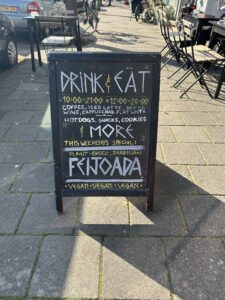 DRINK & EAT
10:00-21:00 + 12:00-20:00
COFFEE, ICED LATTE, BEERS
WINE, CAPPUCCINO, FLAT WHITE
HOTDOGS, SNACKS, COOKIES
& MORE
THIS WEEKEND'S SPECIAL:
PLANT-BASED BRAZILIAN
FEIJOADA
-VEGAN-VEGAN-VEGAN-